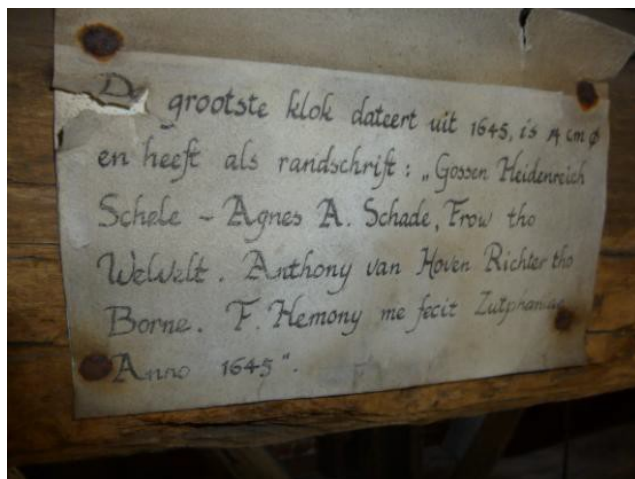 De grootste klok dateert uit 1645, is 74 cm ø
en heeft als randschrift: „Gossen Heidenreich
Schele ~ Agnes A. Schade, Frow tho
Welvelt. Anthony van Hoven Richter tho
Borne. F. Hemony me fecit Zutphaniae
Anno 1645".